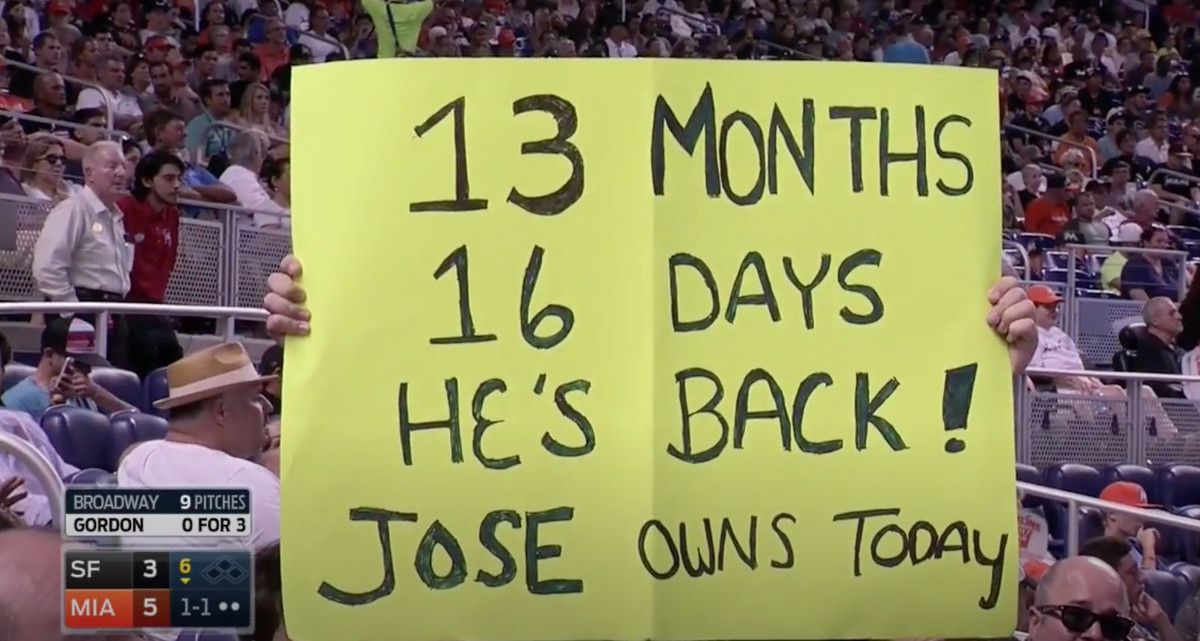 13 MONTHS
16 DAYS
HE'S BACK!
JOSE OWNS TODAY
BROADWAY 9 PITCHES
GORDON 0 FOR 3
SF 3 6
MIA 5 1-1